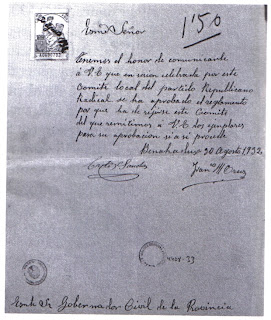 1'50
Exmo Señor
Tenemos el honor de comunicarle
á V.E que en sesion celebrada por este
Comite local del partido Republicano
Radical se ha aprobado el reglamento
por que ha de regirse este Comite
del que remitimos a V.E dos ejemplares
para su aprobacion si asi procede
Benahadux 30 Agosto 1932
Sr Gobernador Civil de la Provincia